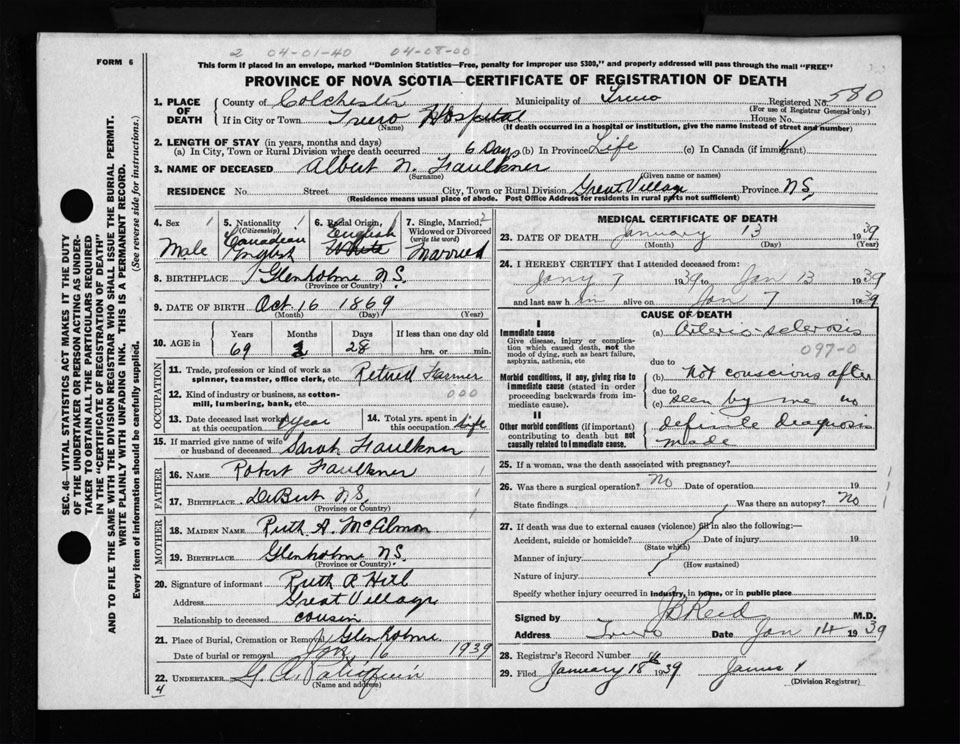 2 04-01-40 04-08-00
FORM 6
This form if placed in an envelope, marked "Dominion Statistics—Free, penalty for improper use $300," and properly addressed will pass through the mail "FREE"
PROVINCE OF NOVA SCOTIA—CERTIFICATE OF REGISTRATION OF DEATH
SEC. 46—VITAL STATISTICS ACT MAKES IT THE DUTY
OF THE UNDERTAKER OR PERSON ACTING AS UNDER-
TAKER TO OBTAIN ALL THE PARTICULARS REQUIRED
IN THE "CERTIFICATE OF REGISTRATION OF DEATH"
AND TO FILE THE SAME WITH THE DIVISION REGISTRAR WHO SHALL ISSUE THE BURIAL PERMIT.
WRITE PLAINLY WITH UNFADING INK. THIS IS A PERMANENT RECORD.
Every item of information should be carefully supplied. (See reverse side for instructions.)
1. PLACE OF DEATH County of Colchester Municipality of Truro Registered No. 580
(For use of Registrar General only)
If in City or Town Truro Hospital House No.
(Name) (If death occurred in a hospital or institution, give the name instead of street and number)
2. LENGTH OF STAY (in years, months and days)
(a) In City, Town or Rural Division where death occurred 6 Days (b) In Province Life (c) In Canada (if immigrant)
3. NAME OF DECEASED Albert N. Faulkner
(Surname) (Given name or names)
RESIDENCE No. Street City, Town or Rural Division Great Village Province N.S.
(Residence means usual place of abode. Post Office Address for residents in rural parts not sufficient)
4. Sex 1 Male
5. Nationality 1 (Citizenship) Canadian English
6. Racial Origin 1 English White
7. Single, Married, Widowed or Divorced 2 (write the word) Married
8. BIRTHPLACE Glenholme N.S.
(Province or Country)
9. DATE OF BIRTH Oct. 16 1869
(Month) (Day) (Year)
10. AGE Years 69 Months 2 Days 28 If less than one day old hrs. or min.
OCCUPATION
11. Trade, profession or kind of work as spinner, teamster, office clerk, etc. Retired Farmer
12. Kind of industry or business, as cotton-mill, lumbering, bank, etc. 000
13. Date deceased last worked at this occupation Year
14. Total yrs. spent in this occupation Life
15. If married give name of wife or husband of deceased Sarah Faulkner
FATHER
16. NAME Robert Faulkner 1
17. BIRTHPLACE DeBert N.S. 1
(Province or Country)
MOTHER
18. MAIDEN NAME Ruth A. McAlmon
19. BIRTHPLACE Glenholme N.S.
(Province or Country)
20. Signature of informant Ruth A Hill
Address Great Village
Relationship to deceased cousin
21. Place of Burial, Cremation or Removal Glenholme
Date of burial or removal Jan 16 1939
22. UNDERTAKER G. A.
(Name and address)
4
MEDICAL CERTIFICATE OF DEATH
23. DATE OF DEATH January 13 1939
(Month) (Day) (Year)
24. I HEREBY CERTIFY that I attended deceased from:
Jany 7 1939 to Jan 13 1939
and last saw him alive on Jan 7 1939
CAUSE OF DEATH
I
Immediate cause
Give disease, injury or complication which caused death, not the mode of dying, such as heart failure, asphyxia, asthenia, etc
(a) Arterio-sclerosis
097-0
due to
Morbid conditions, if any, giving rise to immediate cause (stated in order proceeding backwards from immediate cause).
(b) Not conscious after
due to
(c) seen by me no
II
Other morbid conditions (if important) contributing to death but not causally related to immediate cause.
definite diagnosis
made
25. If a woman, was the death associated with pregnancy?
26. Was there a surgical operation? No Date of operation 19
State findings Was there an autopsy? No
27. If death was due to external causes (violence) fill in also the following:—
Accident, suicide or homicide? Date of injury 19
(State which)
Manner of injury
(How sustained)
Nature of injury
Specify whether injury occurred in industry, in home, or in public place
Signed by J B Reid M.D.
Address Truro Date Jan 14 1939
28. Registrar's Record Number
29. Filed January 18th 1939 James
(Division Registrar)